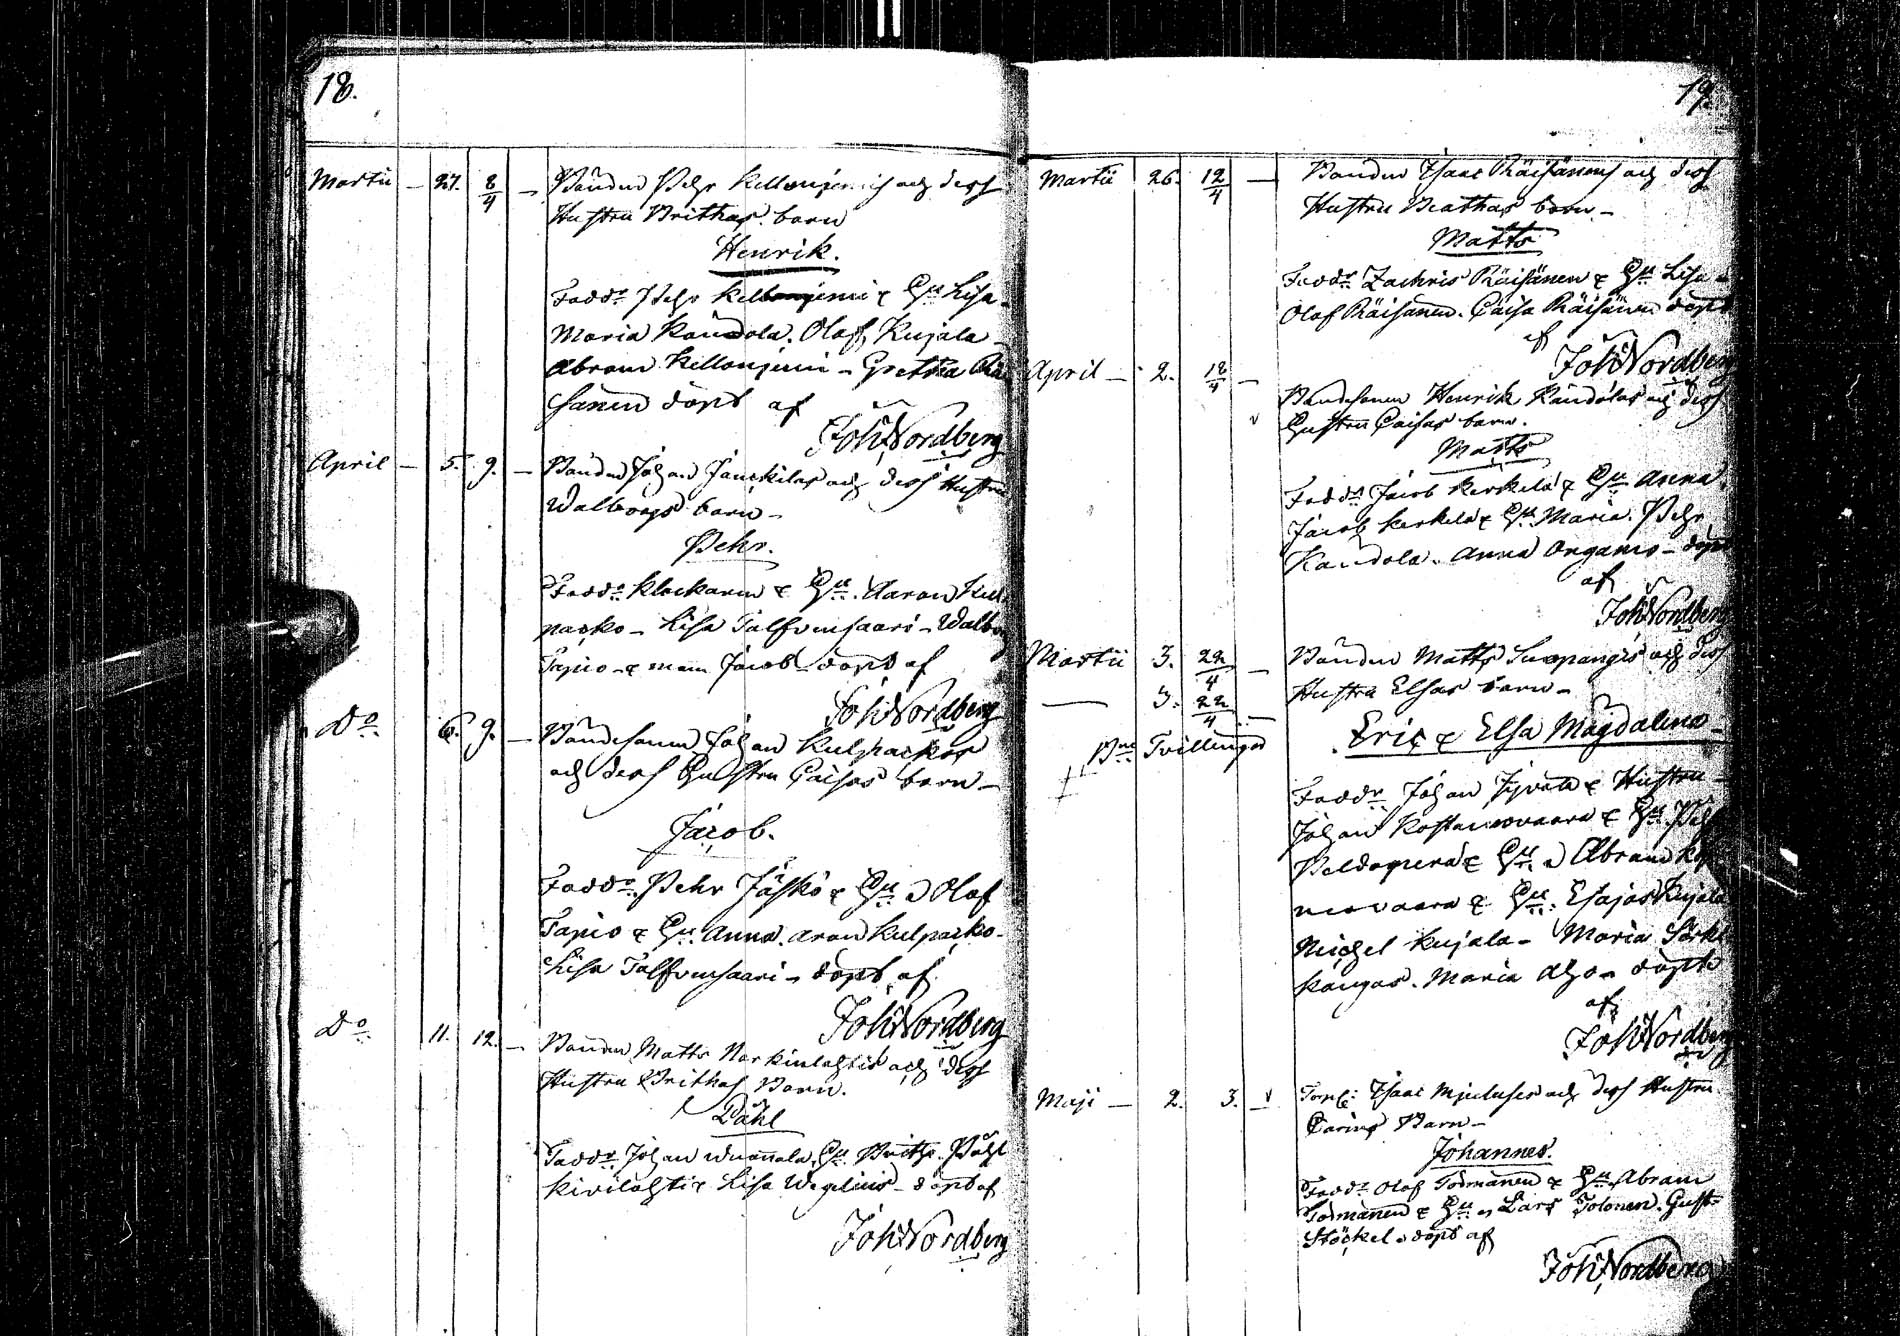 18.
Martii – 27. 8/4 – Bonden Pehr Killonjemis och dess
Hustru Brithas barn
Henrik.
Fadd:r Pehr Killonjemi & Hu Lisa –
Maria Kandola. Olof Kujala –
Abram Killonjemi – Gretha Räi
sänen döpt af
Joh: Nordberg
April – 5. 9. – Bonden Johan Hustru
Walborgs barn –
Pehr.
Fadd:r Klockaren & Hu. Aaron Kul
packo – Lisa Talfvensaari – Walborg
Tapio – & man Jacob – döpt af
Joh: Nordberg
Do 6. 9. – Bondesonen Johan Kulpackos
och dess Hustru Caisas barn –
Jacob.
Fadd:r Pehr Jäskö & Hu Olof
Tapio & Hu. Anna. Aron Kulpacko –
Lisa Talfvensaari – döpt af
Joh: Nordberg
Do 11. 12. – Bonden Matts och dess
Hustru Brithas Barn.
Påhl
Fadd:r Johan Hu Britha. Påhl
Kivilahti & Lisa Wegelius – döpt af
Joh: Nordberg
19.
Martii 26. 12/4 – Bonden Isaac Räisänens och dess
Hustru Beathas barn –
Matts
Fadd:r Zachris Räisänen & Hu Lisa –
Olof Räisänen. Caisa Räisänen döpt
af
Joh: Nordberg
April – 2. 18/4 – Bondesonen Henrik Kandolas och dess
Hustru Caisas barn.
Matts
Fadd:r Jacob Kerkelä & Hu Anna.
Jacob Kerkelä & Hu Maria. Pehr
Kandola. Anna Angamo – döpt
af
Joh: Nordberg
Martii 3. 22/4 – Bonden Matts Suopangis och dess
– 3. 22/4 – Hustru Elsas barn –
Tvillingar Eric & Elsa Magdalena –
Fadd:r Johan & Hustru –
Johan Kostamovaara & Hu. Påhl
Peldoperä & Hu Abram Kosta
movaara & Hu: Esajas Kujala
Michel Kujala – Maria Särki
kangas. Maria Aho – döpte
af
Joh: Nordberg
Maji – 2. 3. – Isaac Mjeluses och dess Hustru
Carins Barn –
Johannes.
Fadd:r Olof Tormänen & Hu Abram
Tormänen & Hu Lars Tolonen. Gust:
Stöckel döpt af
Joh: Nordberg